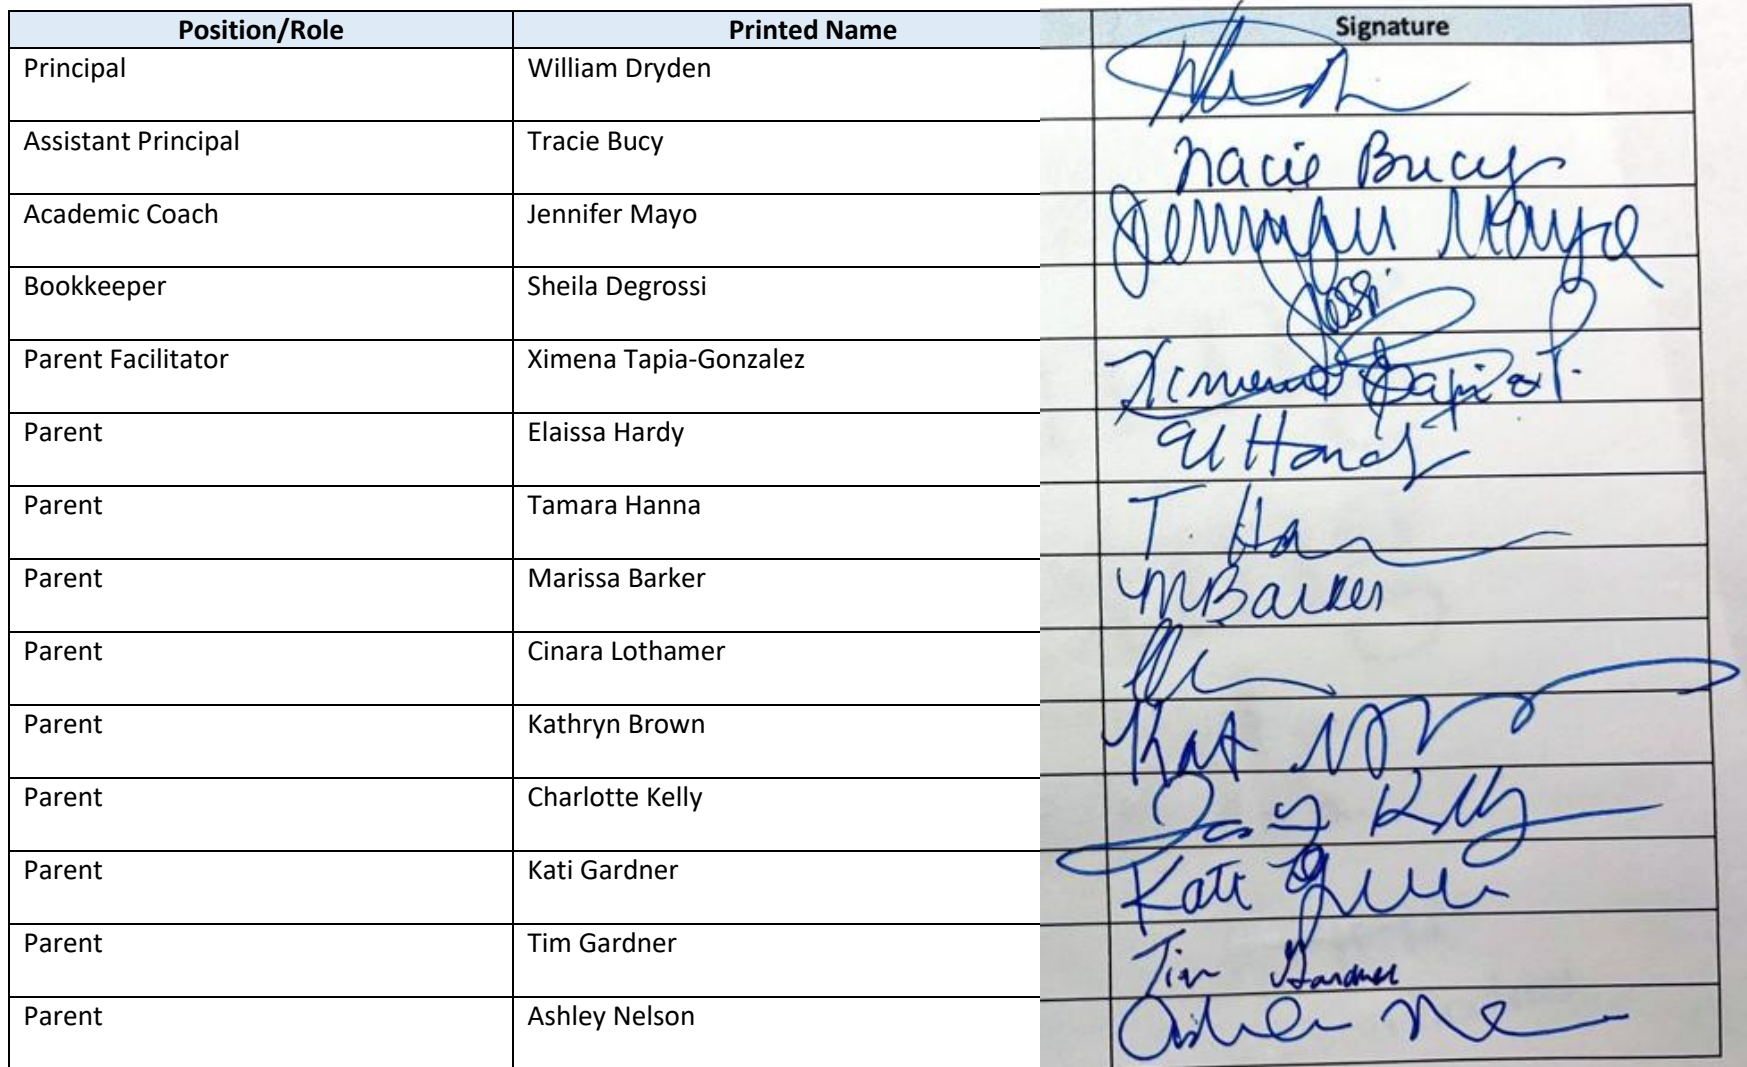 Position/Role Printed Name Signature
Principal William Dryden
Assistant Principal Tracie Bucy Tracie Bucy
Academic Coach Jennifer Mayo Jennifer Mayo
Bookkeeper Sheila Degrossi
Parent Facilitator Ximena Tapia-Gonzalez Ximena Tapia
Parent Elaissa Hardy El Hardy
Parent Tamara Hanna T. Ha
Parent Marissa Barker MBarker
Parent Cinara Lothamer
Parent Kathryn Brown Kat
Parent Charlotte Kelly Kelly
Parent Kati Gardner Kati
Parent Tim Gardner Tim Gardner
Parent Ashley Nelson